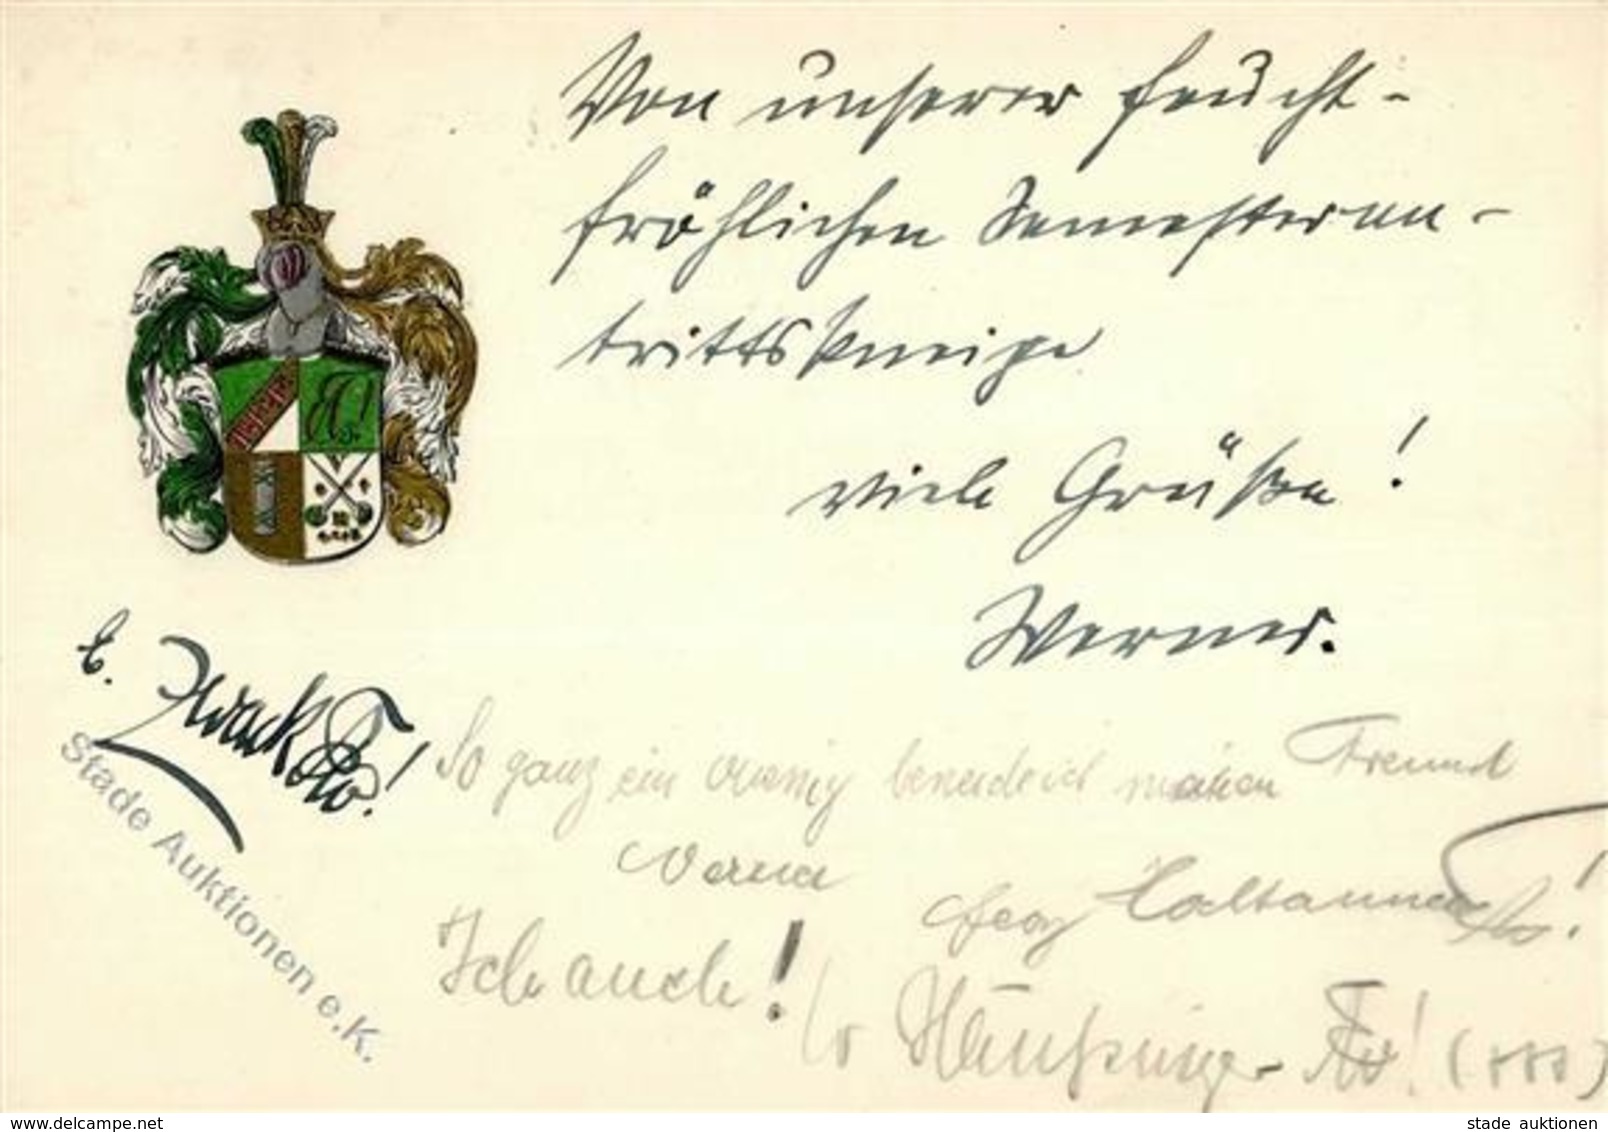 Von unserer feucht-
fröhlichen Semesteran-
trittskneipe
viele Grüße!
Werner.
E. Zwack
So ganz ein wenig beneide ich meinen Freund
Werner
Georg
Ich auch!
Stade Auktionen e.K.
www.delcampe.net
stade auktionen